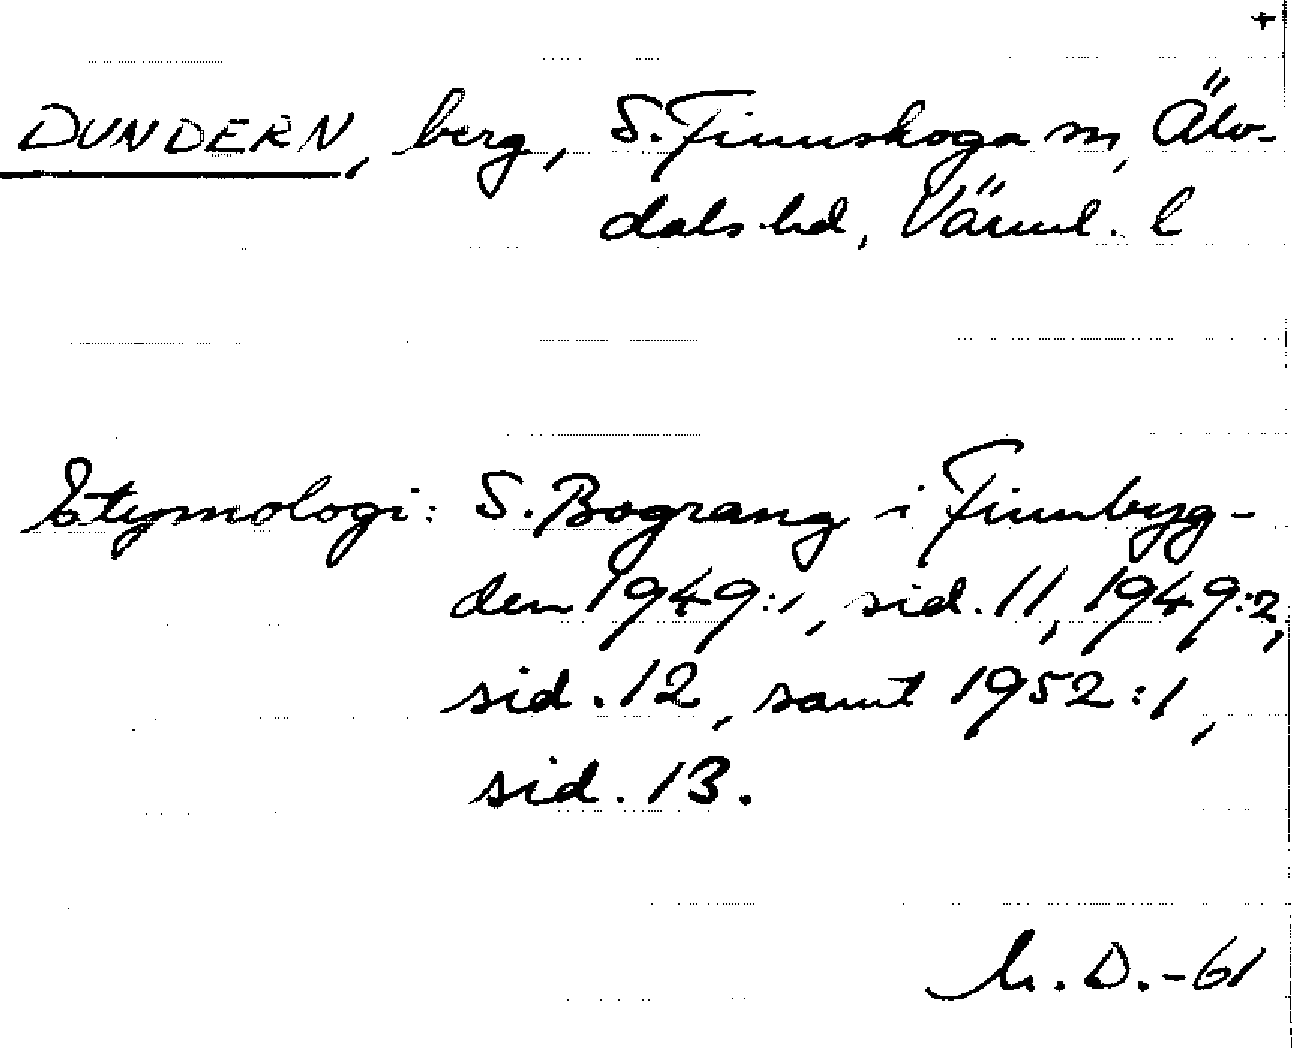 +
DUNDERN, berg, S. Finnskoga sn, Älv-
dals hd, Värml. l
Etymologi: S. Bograng i Finnbyg-
den 1949:1, sid. 11, 1949:2,
sid. 12, samt 1952:1,
sid. 13.
D.-61